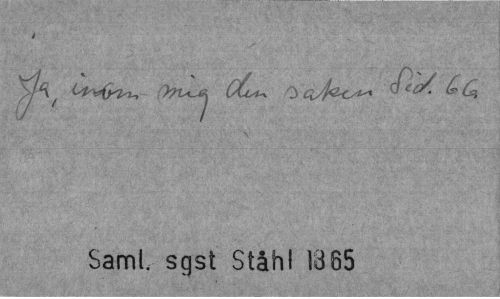 Ja, inom mig den saken Sid. 66
Saml. sgst Ståhl 1865